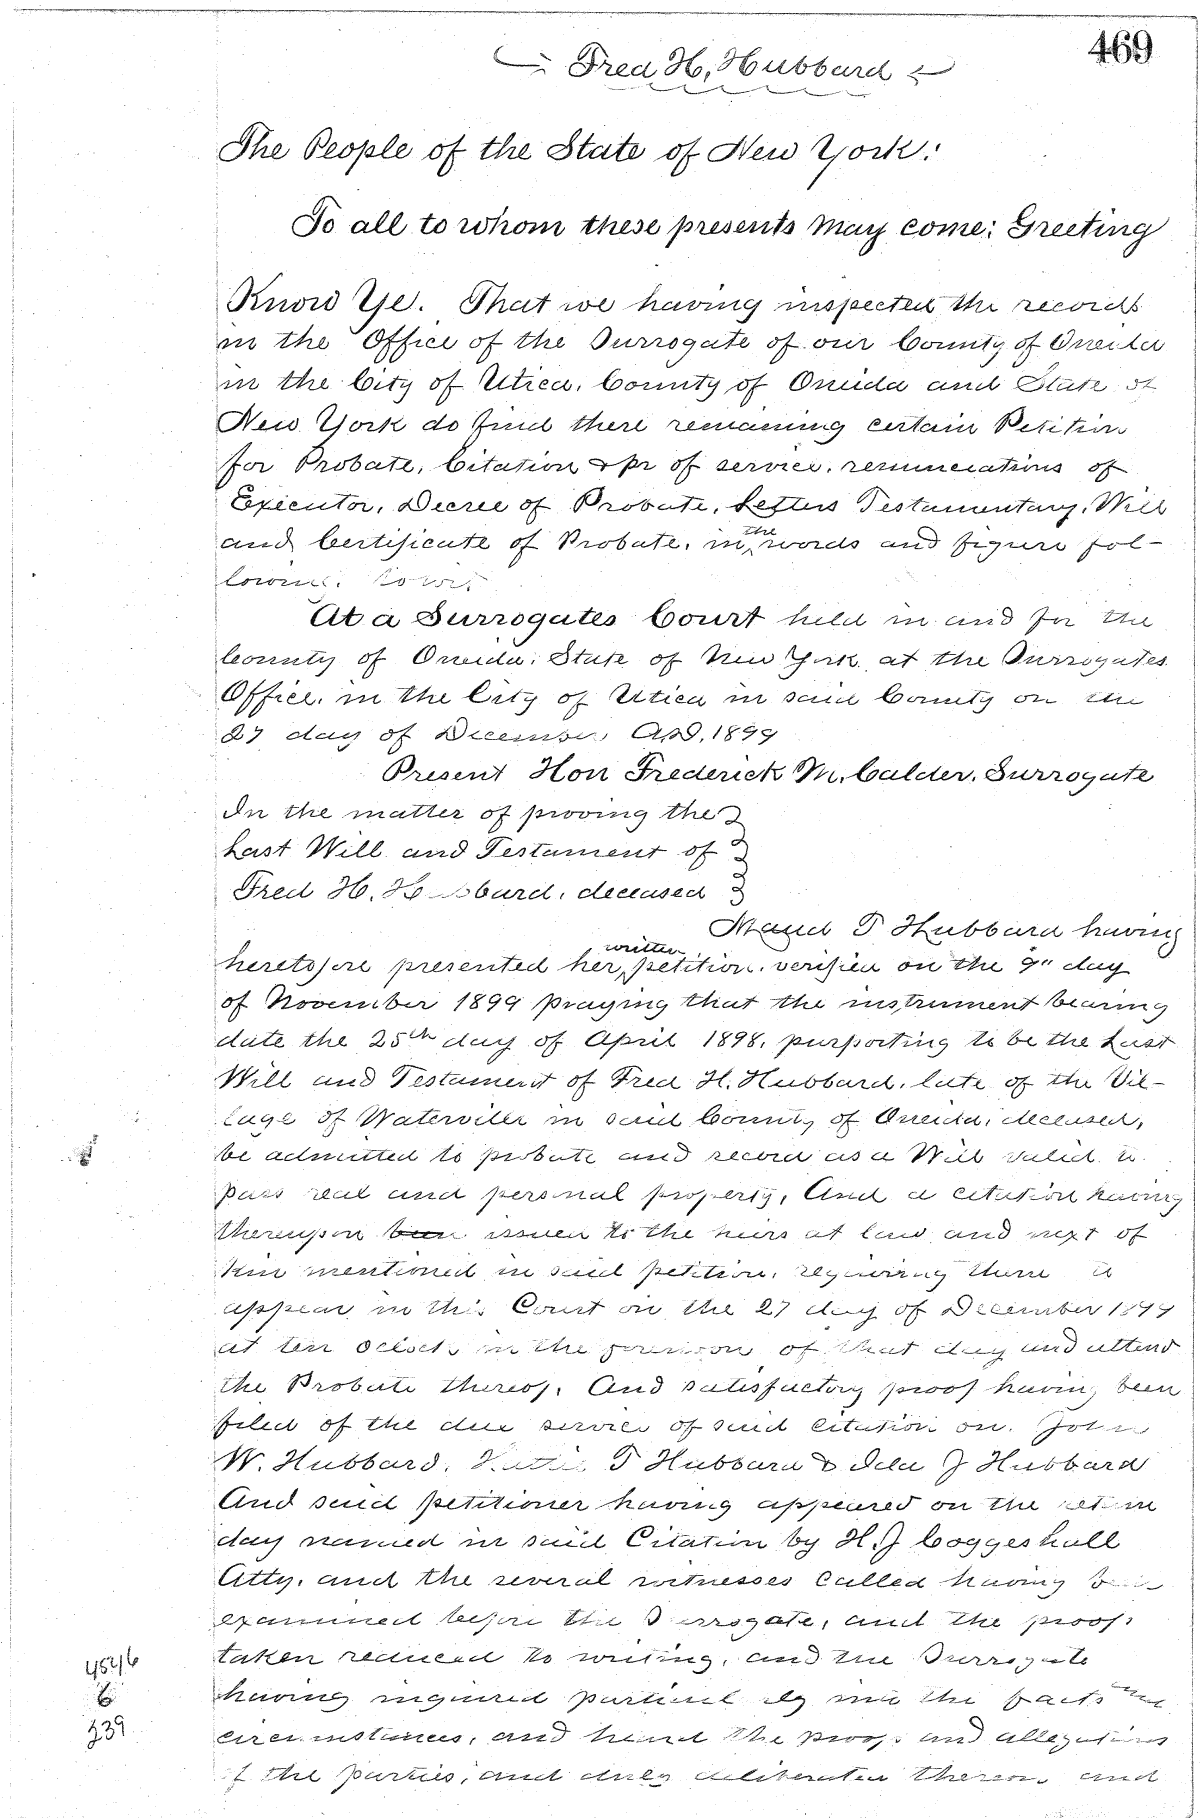 469
Fred H. Hubbard
The People of the State of New York:
To all to whom these presents may come: Greeting
Know Ye. That we having inspected the records
in the Office of the Surrogate of our County of Oneida
in the City of Utica, County of Oneida and State of
New York do find there remaining certain Petition
for Probate, Citation & pr of service, renunciations of
Executor, Decree of Probate, Letters Testamentary, Will
and Certificate of Probate, in the words and figure fol-
lowing. to wit.
At a Surrogates Court held in and for the
County of Oneida, State of New York at the Surrogates
Office, in the City of Utica in said County on the
27 day of December A.D. 1899
Present Hon Frederick M. Calder, Surrogate
In the matter of proving the
Last Will and Testament of
Fred H. Hubbard, deceased
Maud T Hubbard having
heretofore presented her written petition, verified on the 9" day
of November 1899 praying that the instrument bearing
date the 25th day of April 1898, purporting to be the Last
Will and Testament of Fred H. Hubbard, late of the Vil-
lage of Waterville in said County of Oneida, deceased,
be admitted to probate and record as a Will valid to
pass real and personal property, And a citation having
thereupon been issued to the heirs at law and next of
Kin mentioned in said petition, requiring them to
appear in this Court on the 27 day of December 1899
at ten oclock in the forenoon of that day and attend
the Probate thereof. And satisfactory proof having been
filed of the due service of said citation on. John
W. Hubbard, T Hubbard & Ida J Hubbard
And said petitioner having appeared on the return
day named in said Citation by H.J Coggeshall
Atty. and the several witnesses called having been
examined before the Surrogate, and the proofs
taken reduced to writing, and the Surrogate
having inquired particularly into the facts and
circumstances, and heard the proofs and allegations
of the parties, and duly deliberated thereon and
454/6
6
339